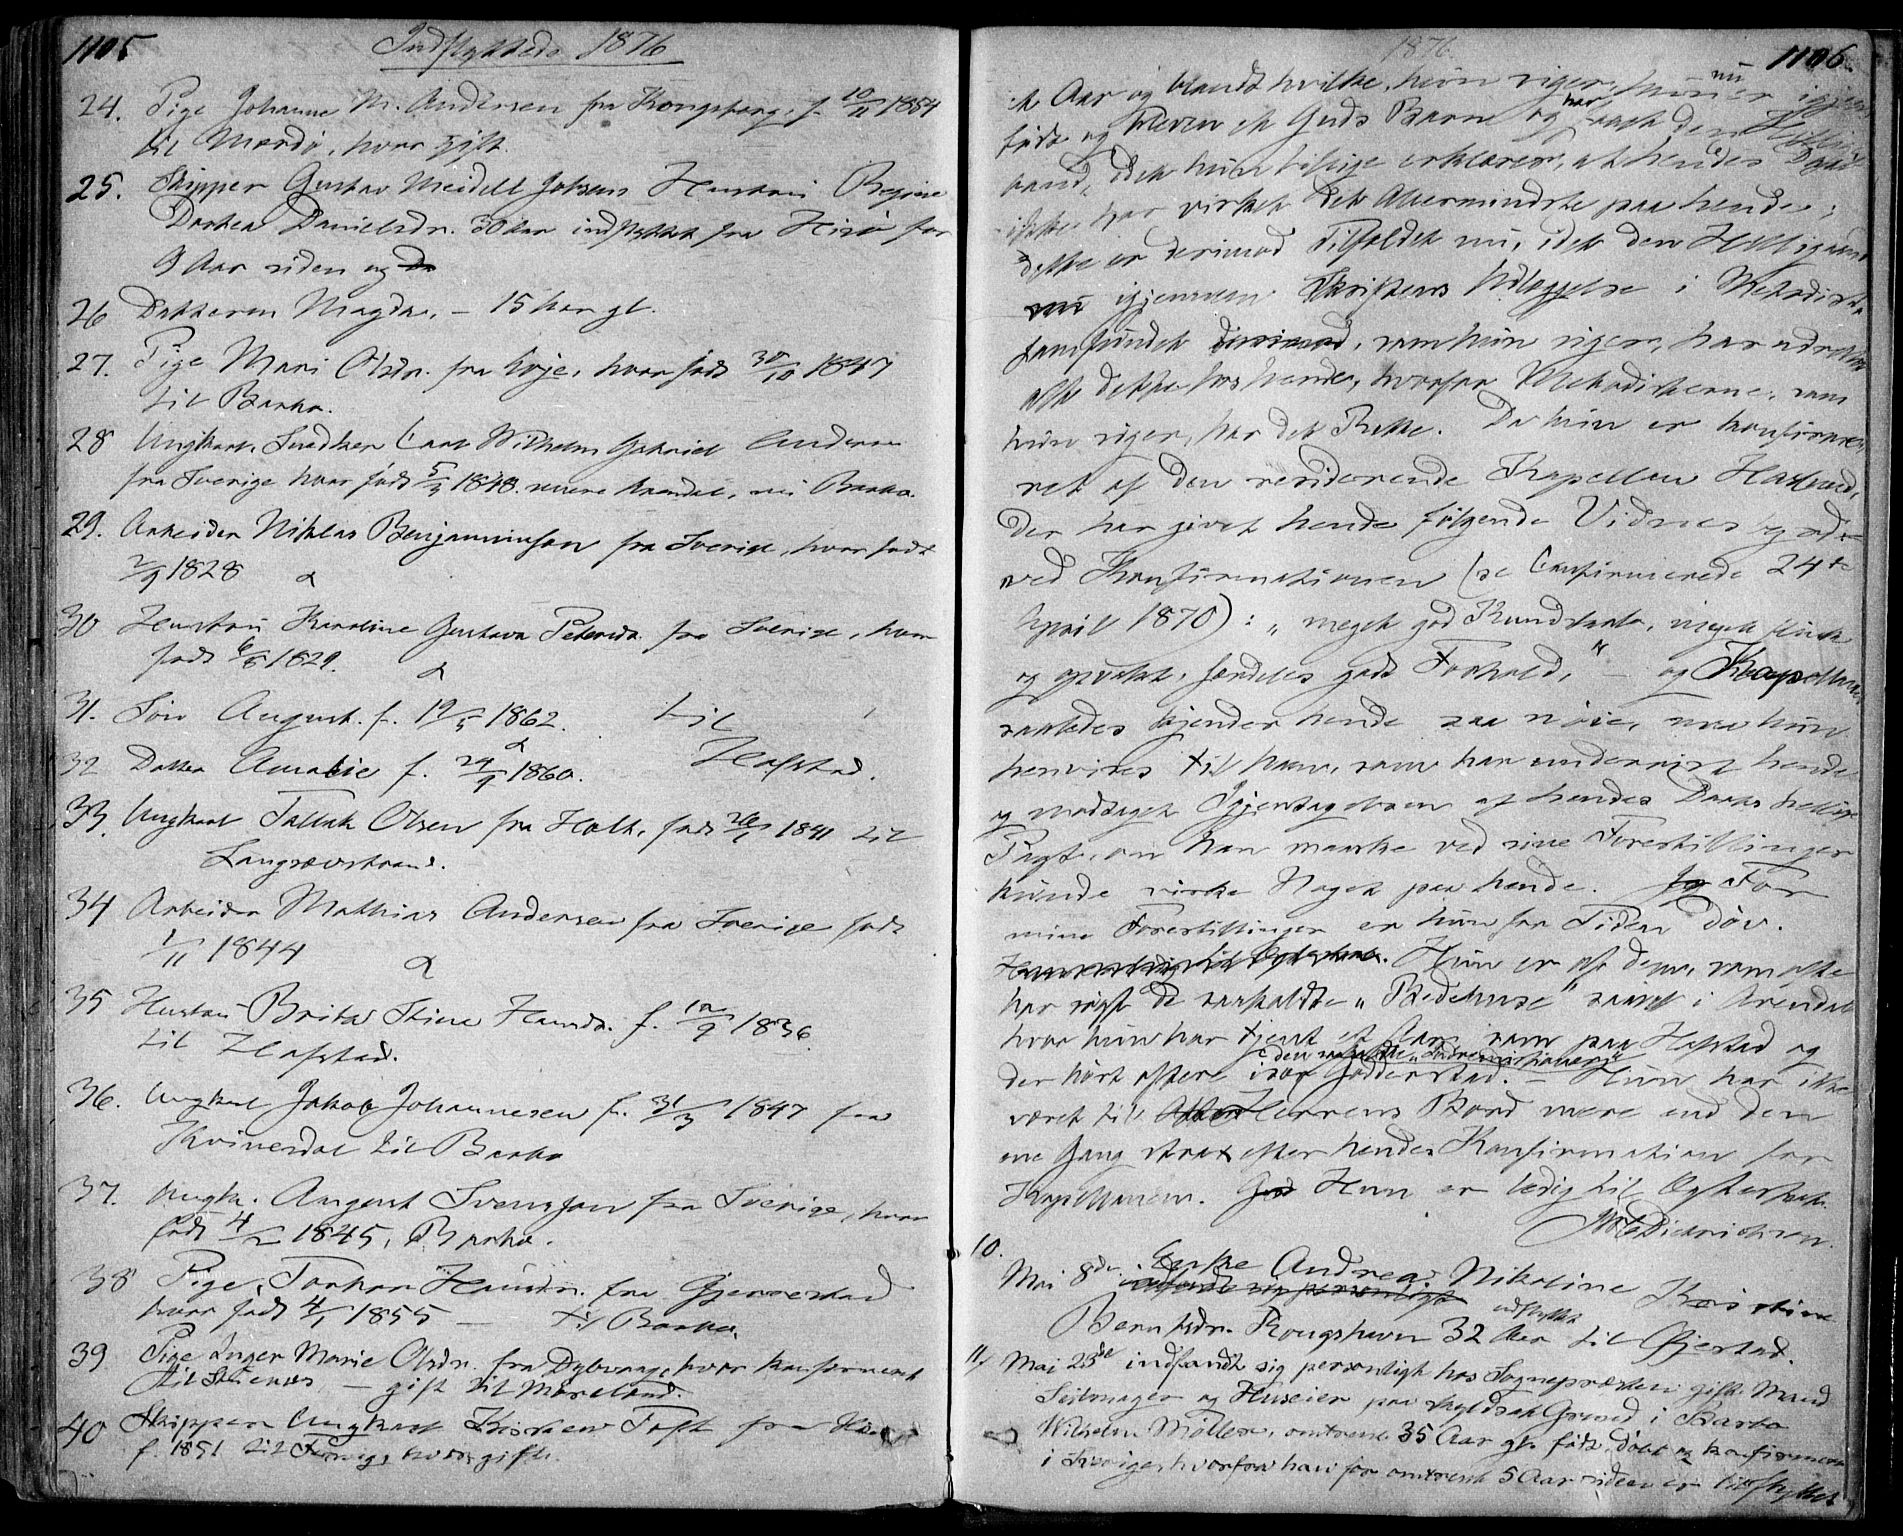 1105
Indflyttede 1876
24. Pige Johanne M. Andersen fra Kongsberg, f. 10/11 1854
til Mærdø, hvor gift.
25. Skipper Gustav Meidell Jobsens Hustru Regine
Dorthea Danielsdr. 30 Aar indflyttet fra Hisø for
9 Aar siden og
26 Datteren Magda, – 15 Aar gl.
27. Pige Mari Olsdr. fra Evje, hvor født 30/10 1847
til Barbo.
28 Ungkarl, Snedker Carl Wilhelm Gabriel Anderson
fra Sverige hvor født 5/3 1848. Arendal, nu Barbo.
29. Arbeider Niklas Benjaminson fra Sverige, hvor født
2/9 1828 &
30 Hustru Karoline Gustava Petersdr. fra Sverige, hvor
født 6/8 1829. &
31. Søn August. f. 19/5 1862. til
&
32 Datter Amalie f. 24/9 1860. Hafstad.
33. Ungkarl Tallak Olsen fra Holt, født 26/1 1841 til
Langsævstrand.
34 Arbeider Mathias Andersen fra Sverige født
1/11 1844 &
35 Hustru Brita Stine Hansdr. f. 12/9 1836.
til Hafstad.
36. Ungkarl Jakob Johannesen f. 31/3 1847 fra
Kvinesdal til Barbo
37. Ungk. August Svensson fra Sverige, hvor
født 4/2 1845, Barbo.
38 Pige, Torbor Hansdr. fra Gjerrestad
hvor født 4/1 1855 – til Barbo.
39 Pige Inger Marie Olsdr. fra Dybvaag, hvor konfirmeret
til – gift til Moreland.
40 Skipper Ungkarl Kristen Toft fra
f. 1851 til hvor gift.
1876.
1106
et Aar og blandt hvilke, hun siger, hun er nu igjen
født og bleven et Guds Barn og har faaet den Hellig
aand, idet hun tillige erklærer, at hendes Daab
ikke har virket det Allermindste paa hende;
dette er derimod Tilfældet nu, idet den Helligaand
nu igjennem Skriftens Udlæggelse i Methodist
samfundet, som hun siger, har udrettet
alt dette hos hende, hvorfor Methodisterne, som
hun siger, har det Rette. Da hun er konfirme
ret af den residerende Kapellan Hasland,
der har givet hende følgende Vidnesbyrd
ved Konfirmationen (se Confirmerede 24de
April 1870): "meget god Kundskab, meget flink
og opvakt, særdeles godt Forhold," – og Kapellanen
saaledes kjender hende saa nøie, maa hun
henvises til ham, som har undervist hende
og modtaget Igjentagelsen af hendes Daabs hellige
Pagt, om han maaske ved sine Forestillinger
kunde virke Noget paa hende. For
mine Forestillinger er hun for Tiden døv.
Hun er af dem, som ofte
har søgt de saakaldte "Bedehuse" saavel i Arendal
hvor hun har tjent et Aar, som paa Hafstad og
den saakaldte "Indremissionær"
der hørt oftere Godderstad. – Hun har ikke
været til Herrens Bord mere end den
ene Gang strax efter hendes Konfirmation for
Kapellanen. Hun er ledig til Ægteskab.
Diderichsen.
10.
Mai 8de. Enke Andrea Nikoline Kristine
indfandt sig personligt
Berntsdr. Kongshavn 32 Aar udflyttet til Øjestad.
11, Mai 23de indfandt sig personligt hos Sognepræsten gift Mand
Seilmager og Huseier paa skyldsat Grund i Barbo
Wilhelm Møller, omtrent 35 Aar gl. født, døbt og konfirmeret
i Sverige, hvorfra han for omtrent 5 Aar siden er indflyttet